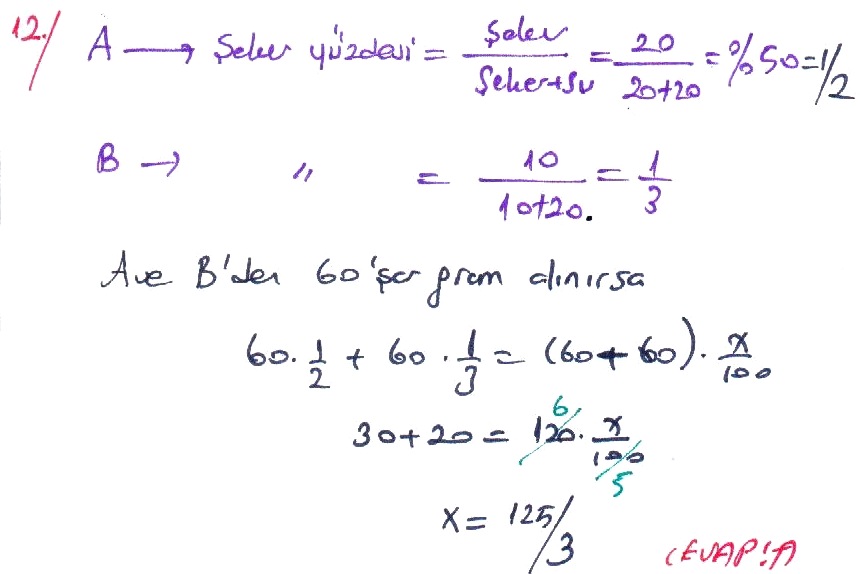 12./ A → Şeker yüzdesi = Şeker / Şeker+Su = 20 / 20+20 = %50 = 1/2
B → " = 10 / 10+20. = 1/3
A ve B'den 60'şar gram alınırsa
60. 1/2 + 60 . 1/3 = (60+60). x/100
30+20 = 120. x/100 6 5
x = 125/3
CEVAP:A